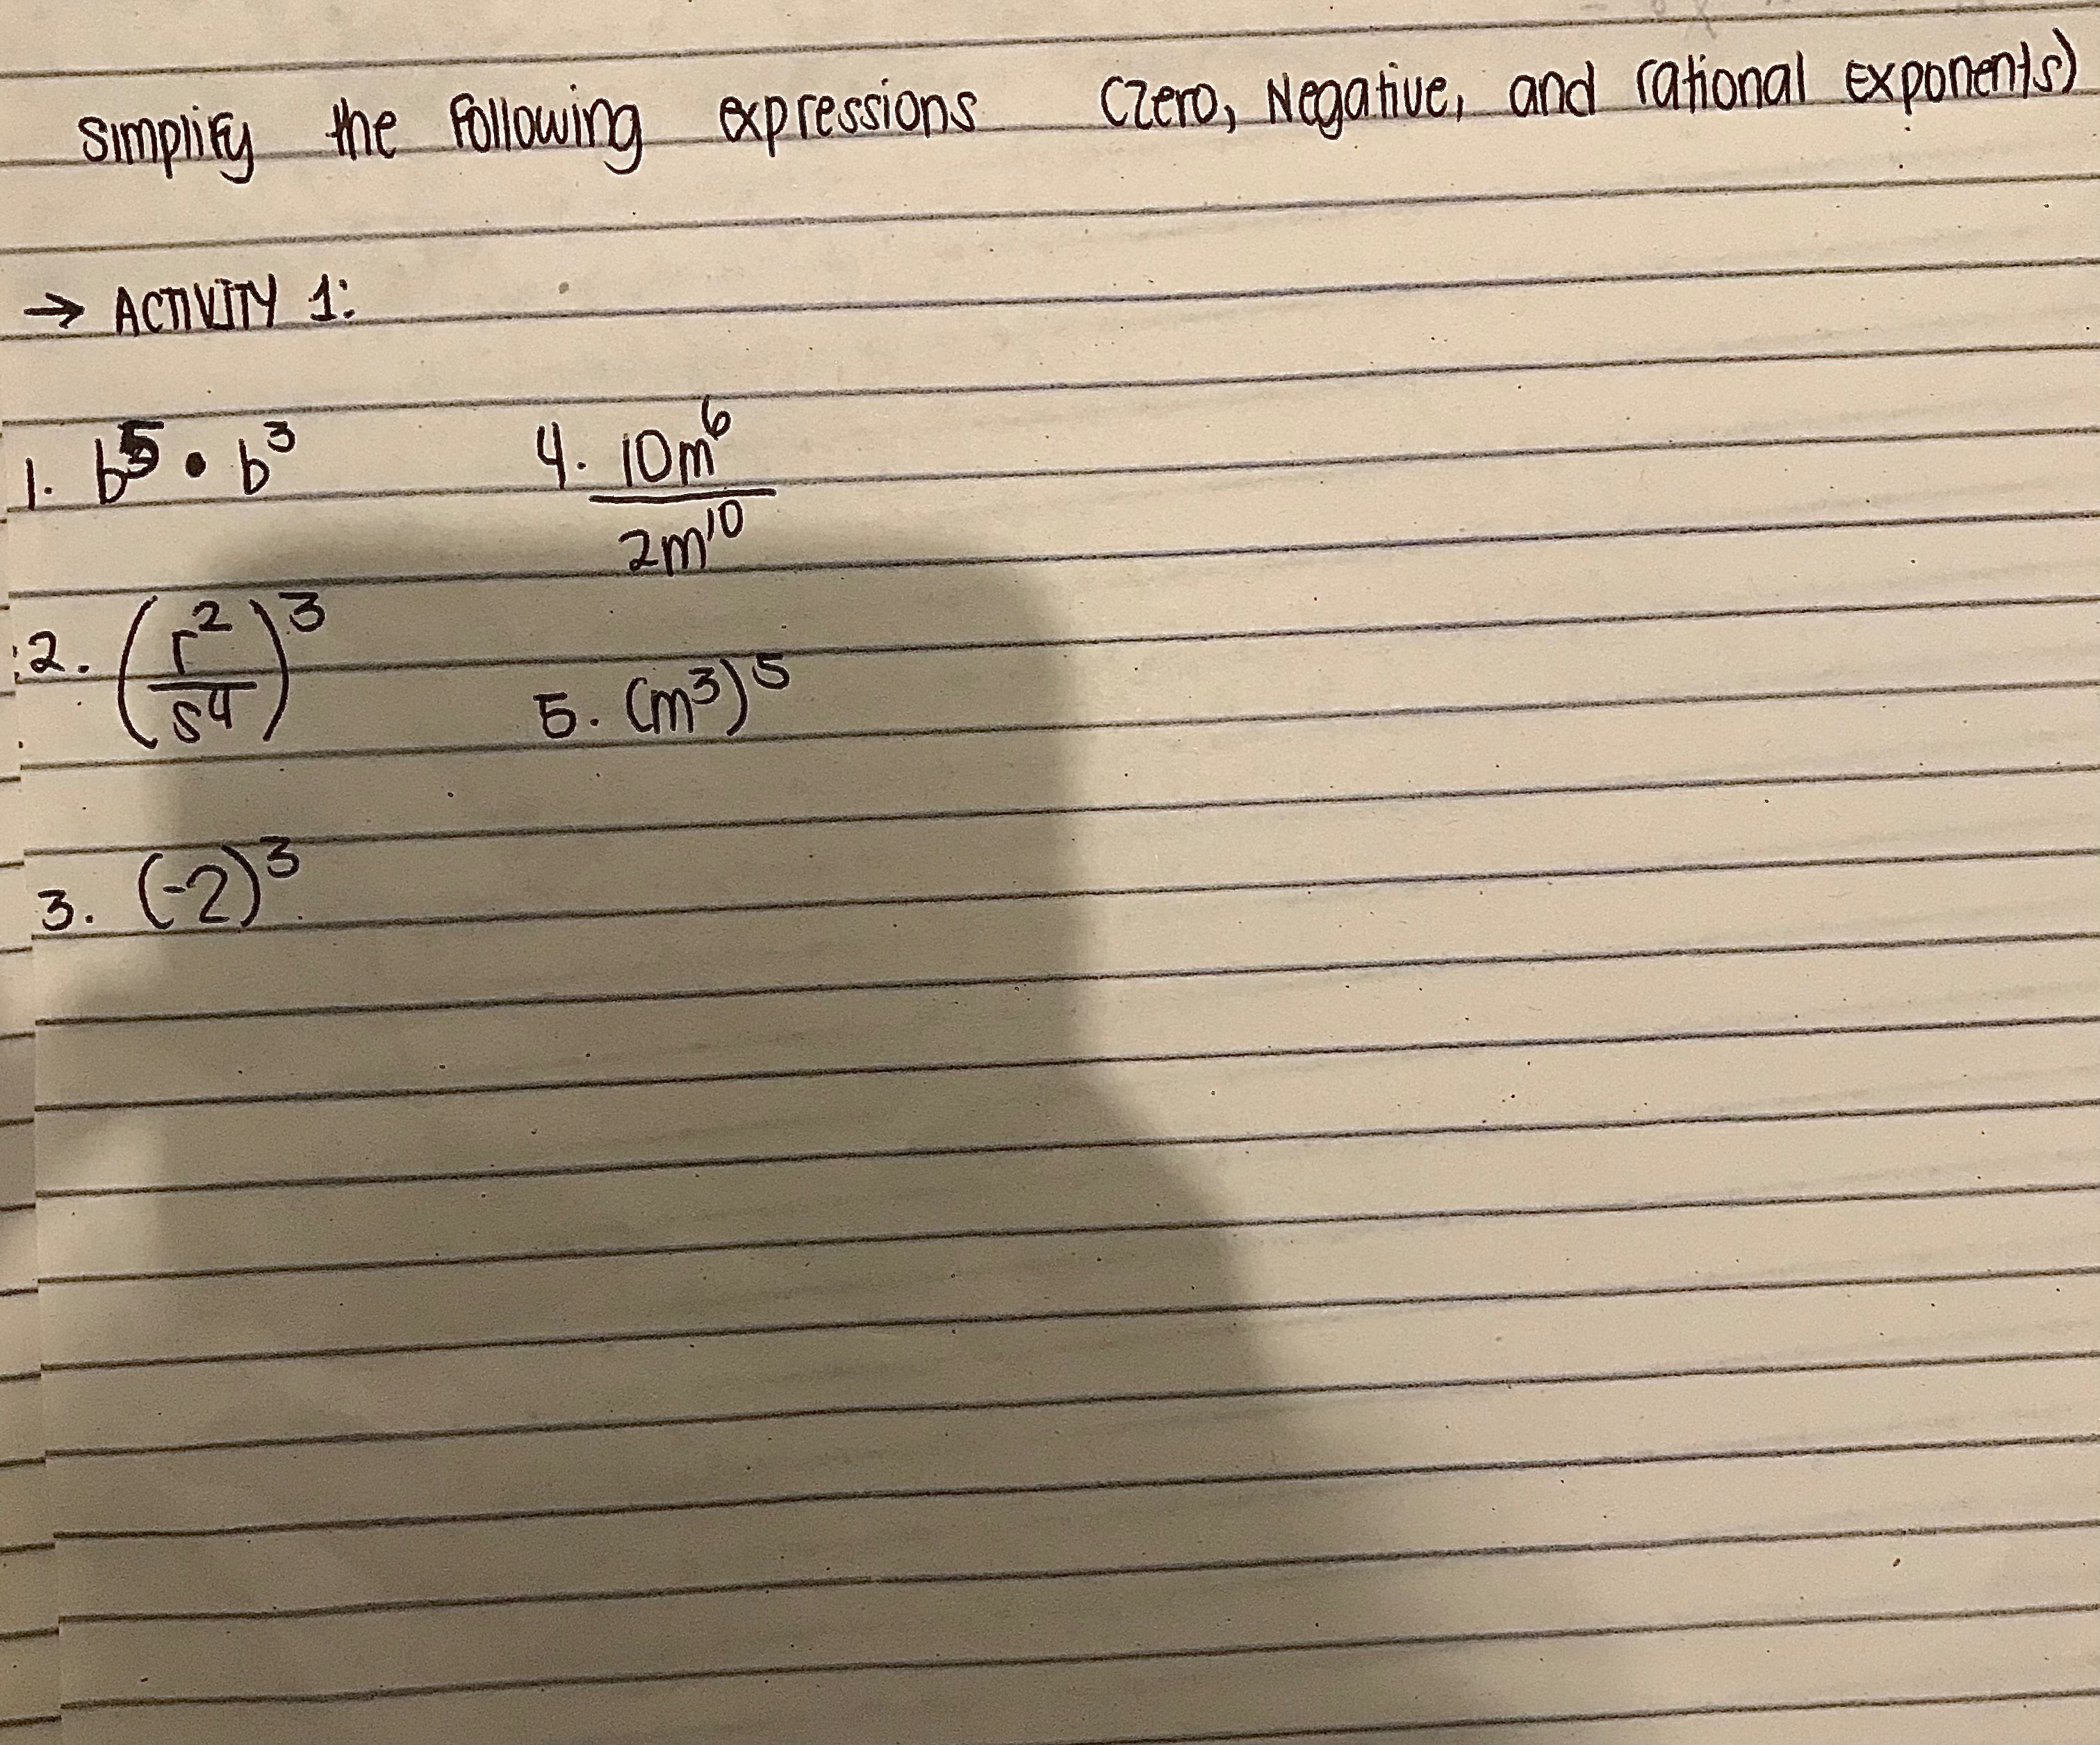 Simplify the Following expressions (Zero, Negative, and rational Exponents)
→ ACTIVITY 1:
1. b⁵ • b³
4. 10m⁶
2m¹⁰
2. (r²/s⁴)³
5. (m³)⁵
3. (-2)³